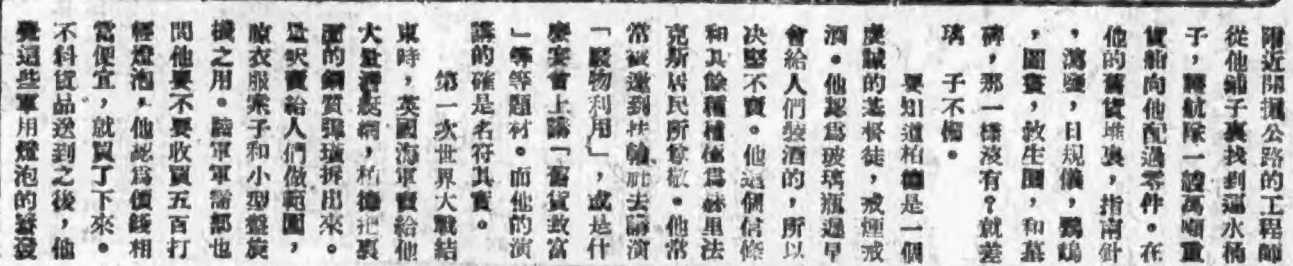 附近開掘公路的工程師
從他鋪子裏找到過水桶
子,護航隊一艘萬噸重
貨船向他配過零件。在
他的舊貨堆裏,指南針
,馮鹽,日規儀,鸚鵡
,圖畫,救生圈,和墓
碑,那一樣沒有?就差
璃 子不備。
要知道柏德是一個
虔誠的基督徒,戒煙戒
酒。他認爲玻璃瓶遲早
會給人們裝酒的,所以
决堅不賣。他這個信條
和其餘種種極爲赫里法
克斯居民所尊敬。他常
常被邀到扶輪社去講演
「廢物利用」,或是什
麼宴會上講「舊貨致富
」等等題材。而他的演
講的確是名符其實。
第一次世界大戰結
束時,英國海軍賣給他
大量潛艇網,柏德把裏
面的鋼質彈簧拆出來。
並呎賣給人們做範圍,
晾衣服架子和小型盤旋
機之用。陸軍軍需部也
問他要不要收買五百打
輕燈泡,他認爲價錢相
當便宜,就買了下來。
不料貨品送到之後,他
覺這些軍用燈泡的